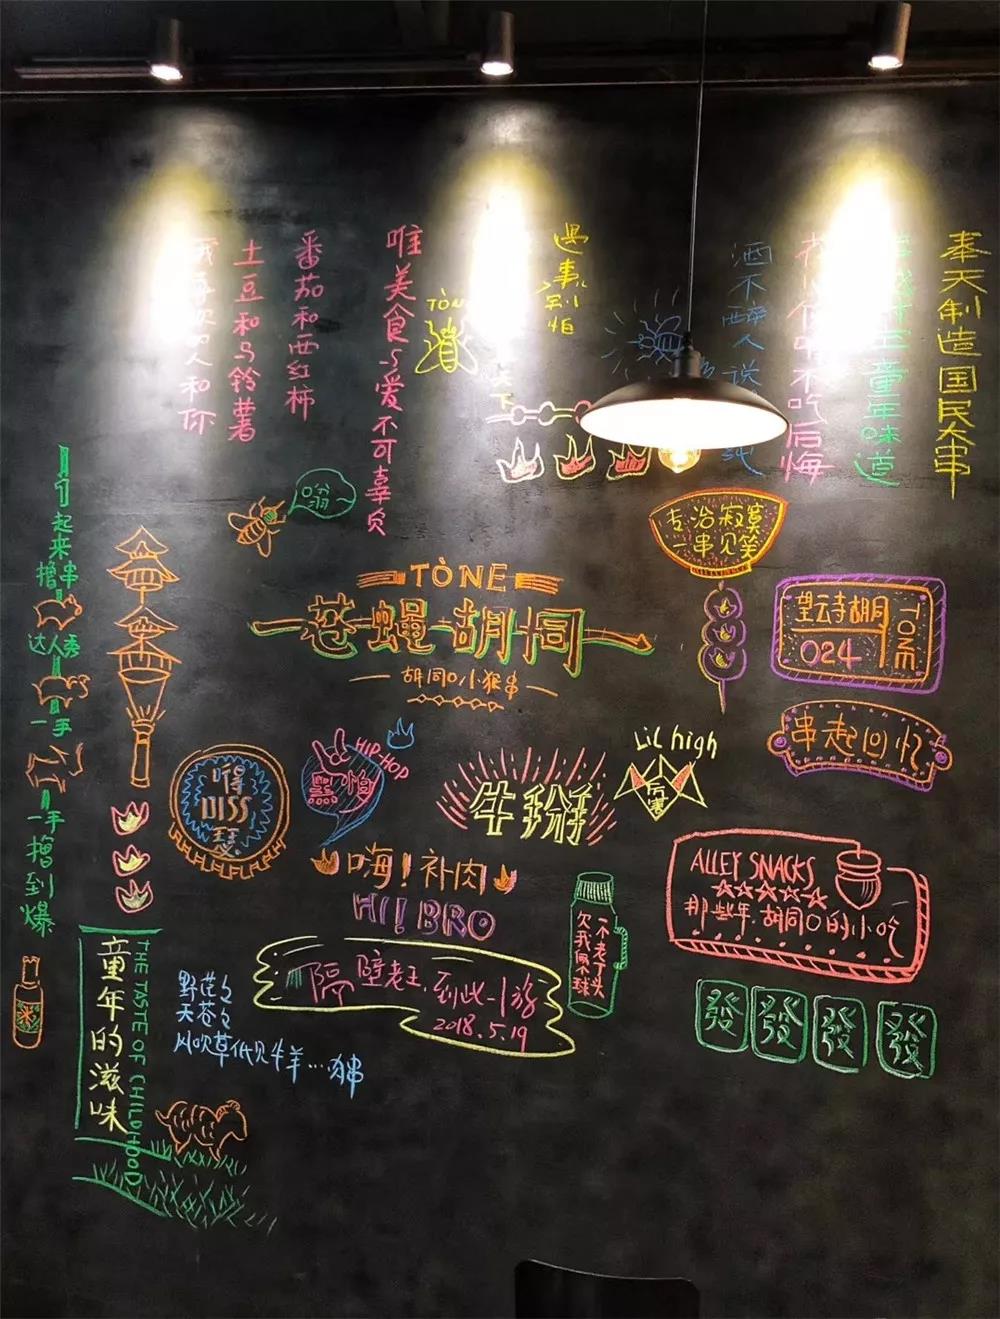 奉天制造国民大串
童年味道
不吃后悔
酒不醉人
遇事别怕
TÒNE
唯美食与爱不可辜负
番茄和西红柿
土豆和马铃薯
人和你
嗡
一起来撸串
达人秀
一手
一手撸到爆
专治寂寞
一串见笑
TÒNE
苍蝇胡同
胡同口小猴串
望云寺胡同
024
TONE
串起回忆
嘚
DISS
瑟
HIP HOP
Lil high
厉害
牛掰
嗨！补肉
HI! BRO
ALLEY SNACKS
那些年,胡同口的小吃
隔壁老王,到此一游
2018.5.19
發
發
發
發
童年的滋味
THE TASTE OF CHILDHOOD
野茫々
天苍々
风吹草低见牛羊…肉串